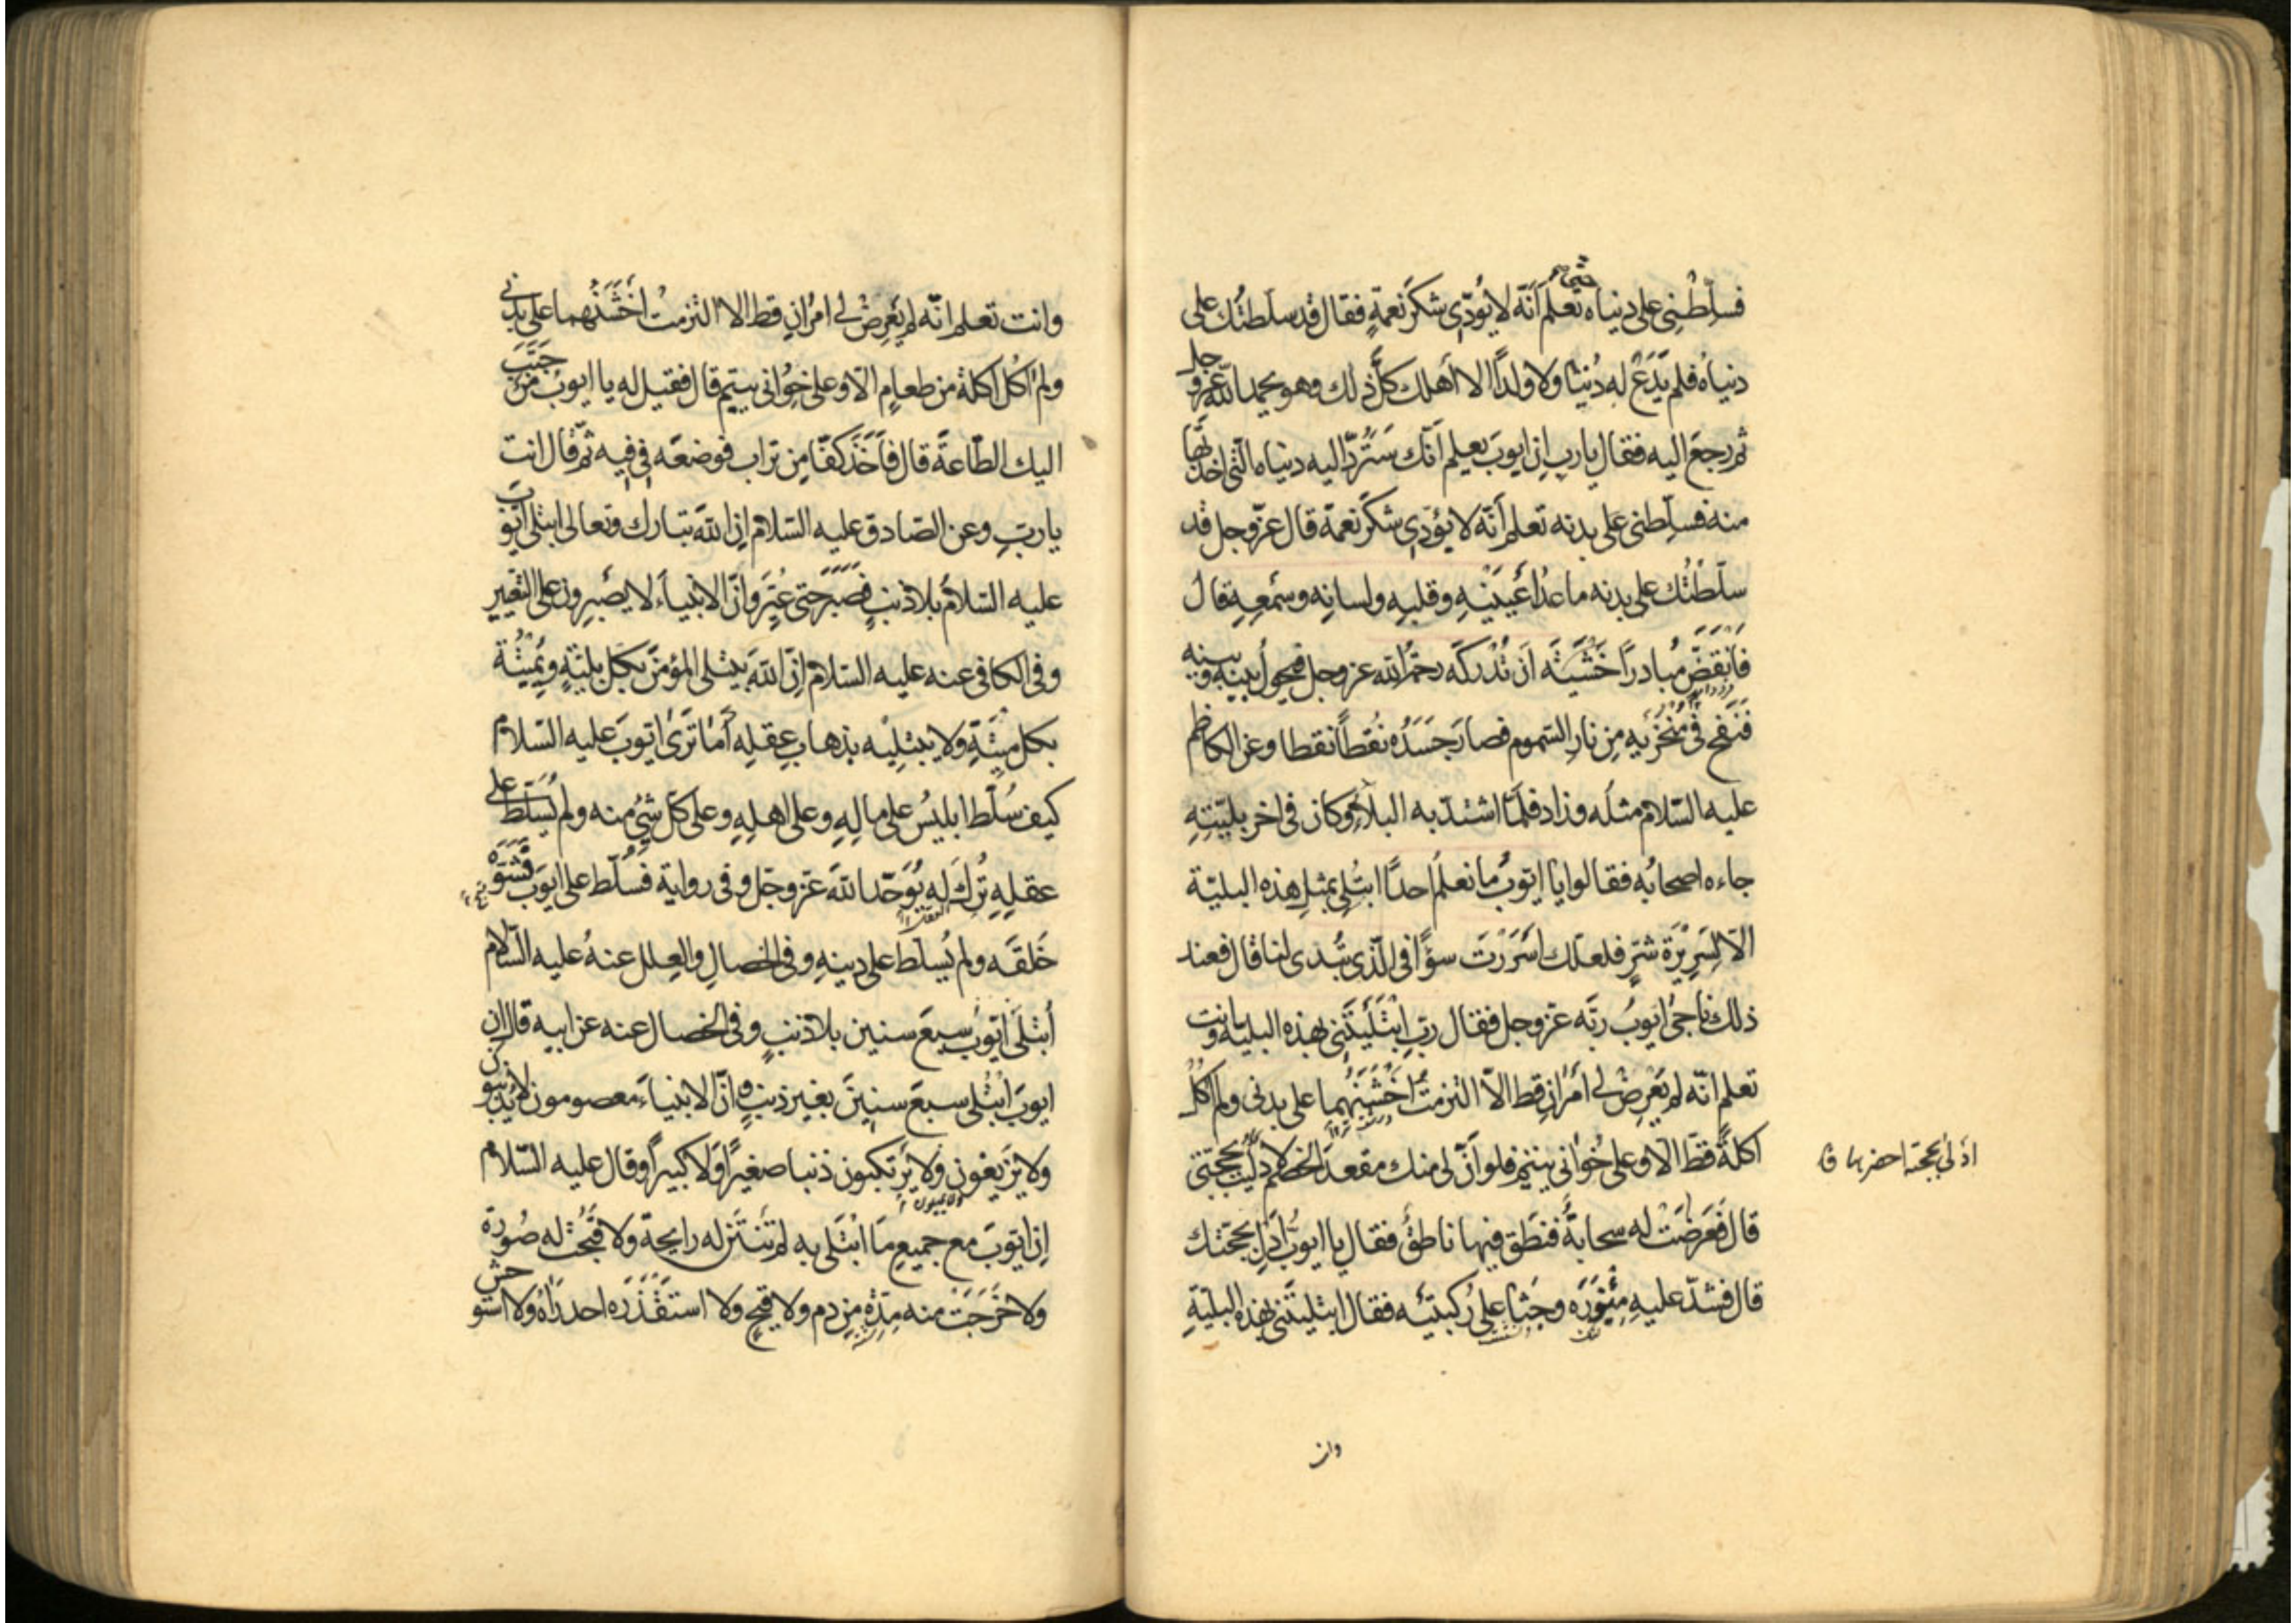 فسلّطنى على دنياه تعلم أنّه لا يؤدّى شكر نعمةٍ فقال قد سلّطتك على
دنياه فلم يدع له دُنيا ولا ولداً الا أهلك كلّ ذلك وهو يحمد الله عزّ وجل
ثم رجع اليه فقال يا رب إن ايوب يعلم أنّك سترّد اليه دنياه التى اخذتها
منه فسلّطنى على بدنه تعلم أنّه لا يؤدّى شكر نعمة قال عزّ وجل قد
سلّطتك على بدنه ما عدا عينيه وقلبه ولسانه وسمعه قال
فانقضّ مُبادراً خشية أن تُدركه رحمة الله عز وجل فيحول بينه وبينه
فنفخ فى منخريه من نار السّموم فصار جسده نقطاً نقطا وعن الكاظم
عليه السّلام مثله وزاد فلمّا اشتدّ به البلاء وكان فى اخر بليّته
جاءه اصحابه فقالوا يا ايوب ما نعلم احدًا ابتُلى بمثل هذه البليّة
الاّ لسريرة شرٍّ فلعلّك اسررت سوءًا فى الّذى تُبدى لنا قال فعند
ذلك ناجى ايوبُ ربّه عزّ وجل فقال ربّ ابتليتنى بهذه البلية وانت
تعلم انّه لم يعرض لى أمران قط الاّ التزمت اخشنهما على بدنى ولم اكل
اكلةً قطّ الاّ وعلى خُوانى يتيم فلو أنّ لى منك مقعد الخصم لادليت بحجّتى
ادلى بحجته احضرها ق
قال فعرضت له سحابةٌ فنطق فيها ناطقٌ فقال يا ايوبُ أدلِ بحجّتك
قال فشدّ عليه مئزره وجثا على ركبتيه فقال ابتليتنى بهذه البليّة
وانت
وانت تعلم انّه لم يعرض لى امران قط الا التزمت أخشنهما على بدنى
ولم اكل اكلة من طعام الاّ وعلى خوانى يتيم قال فقيل له يا ايوب من حبّب
اليك الطّاعة قال فأخذ كفّا من تراب فوضعه فى فيه ثمّ قال انت
يا ربّ وعن الصّادق عليه السّلام إن الله تبارك وتعالى ابتلى أيّوب
عليه السّلام بلا ذنبٍ فصبر حتى عُيّر وانّ الانبياء لا يصبرون على التّعيير
وفى الكافى عنه عليه السّلام إنّ الله يبتلى المؤمن بكل بليّةٍ ويُميته
بكل ميتةٍ ولا يبتليه بذهاب عقله أما ترى ايّوب عليه السّلام
كيف سُلّط ابليسُ على ماله وعلى اهله وعلى كلّ شىء منه ولم يُسلّط على
عقله تُرك له يُوحّد الله عزّ وجلّ وفى رواية فسُلّط على ايوب فشوّه
خلقه ولم يُسلّط على دينه وفى الخصال والعلل عنه عليه السّلام
أبتلى ايّوب سبع سنين بلا ذنبٍ وفى الخصال عنه عن ابيه قال إن
ايوب ابتُلى سبع سنين بغير ذنبٍ وانّ الانبياء معصومون لا يذنبون
ولا يزيغون ولا يرتكبون ذنبا صغيرًا ولا كبيرًا وقال عليه السّلام
ولا يميلون
إن ايّوب مع جميع ما ابتُلى به لم تنتن له رايحة ولا قبُحت له صُورة
ولا خرجت منه مدّة من دم ولا قيحٍ ولا استقذره احد راه ولا استوحش